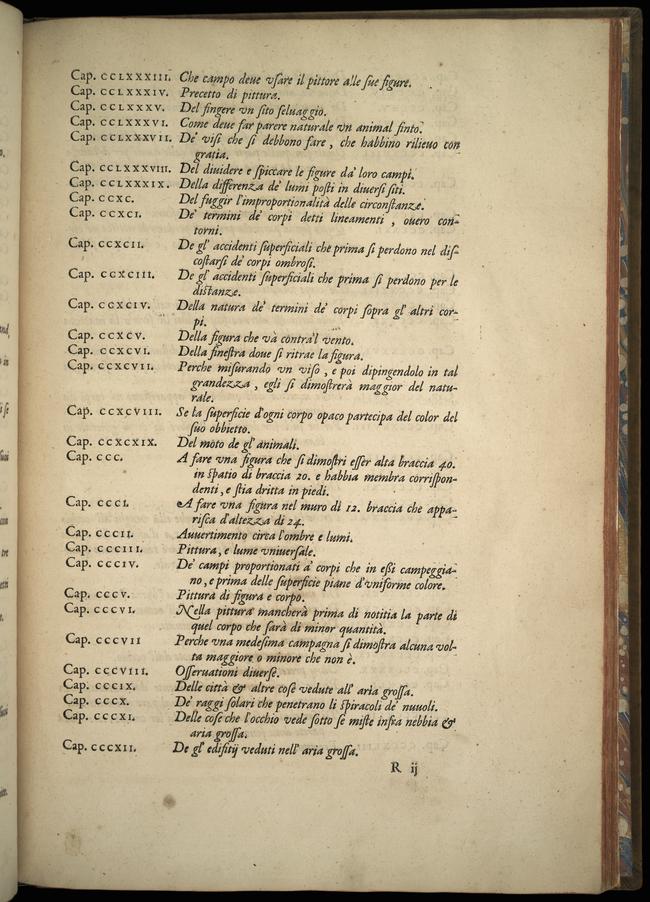 Cap. CCLXXXIII. Che campo deue vſare il pittore alle ſue figure.
Cap. CCLXXXIV. Precetto di pittura.
Cap. CCLXXXV. Del fingere vn ſito ſeluaggio.
Cap. CCLXXXVI. Come deue far parere naturale vn animal finto.
Cap. CCLXXXVII. De' viſi che ſi debbono fare, che habbino rilieuo con
gratia.
Cap. CCLXXXVIII. Del diuidere e ſpiccare le figure da' loro campi.
Cap. CCLXXXIX. Della differenza de' lumi poſti in diuerſi ſiti.
Cap. CCXC. Del fuggir l'improportionalità delle circonſtanze.
Cap. CCXCI. De' termini de' corpi detti lineamenti, ouero con-
torni.
Cap. CCXCII. De gl' accidenti ſuperficiali che prima ſi perdono nel diſ-
coſtarſi de' corpi ombroſi.
Cap. CCXCIII. De gl' accidenti ſuperficiali che prima ſi perdono per le
diſtanze.
Cap. CCXCIV. Della natura de' termini de' corpi ſopra gl' altri cor-
pi.
Cap. CCXCV. Della figura che và contra'l vento.
Cap. CCXCVI. Della fineſtra doue ſi ritrae la figura.
Cap. CCXCVII. Perche miſurando vn viſo, e poi dipingendolo in tal
grandezza, egli ſi dimoſtrerà maggior del natu-
rale.
Cap. CCXCVIII. Se la ſuperficie d'ogni corpo opaco partecipa del color del
ſuo obbietto.
Cap. CCXCXIX. Del moto de gl' animali.
Cap. CCC. A fare vna figura che ſi dimoſtri eſſer alta braccia 40.
in ſpatio di braccia 20. e habbia membra corriſpon-
denti, e ſtia dritta in piedi.
Cap. CCCI. A fare vna figura nel muro di 12. braccia che appa-
riſca d'altezza di 24.
Cap. CCCII. Auuertimento circa l'ombre e lumi.
Cap. CCCIII. Pittura, e lume vniuerſale.
Cap. CCCIV. De' campi proportionati a' corpi che in eſſi campeggia-
no, e prima delle ſuperficie piane d'vniforme colore.
Cap. CCCV. Pittura di figura e corpo.
Cap. CCCVI. Nella pittura mancherà prima di notitia la parte di
quel corpo che ſarà di minor quantità.
Cap. CCCVII Perche vna medeſima campagna ſi dimoſtra alcuna vol-
ta maggiore o minore che non è.
Cap. CCCVIII. Oſſeruationi diuerſe.
Cap. CCCIX. Delle città & altre coſe vedute all' aria groſſa.
Cap. CCCX. De' raggi ſolari che penetrano li ſpiracoli de' nuuoli.
Cap. CCCXI. Delle coſe che l'occhio vede ſotto ſe miſte infra nebbia &
aria groſſa.
Cap. CCCXII. De gl' edifitij veduti nell' aria groſſa.
R ij